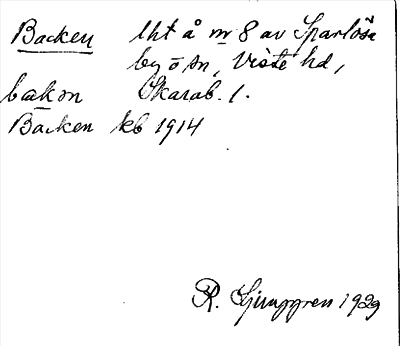 Backen lht å m 8 av Sparlösa
by o sn, Viste hd,
bakan Skarab. l.
Backen kb 1914
R. Ljunggren 1929